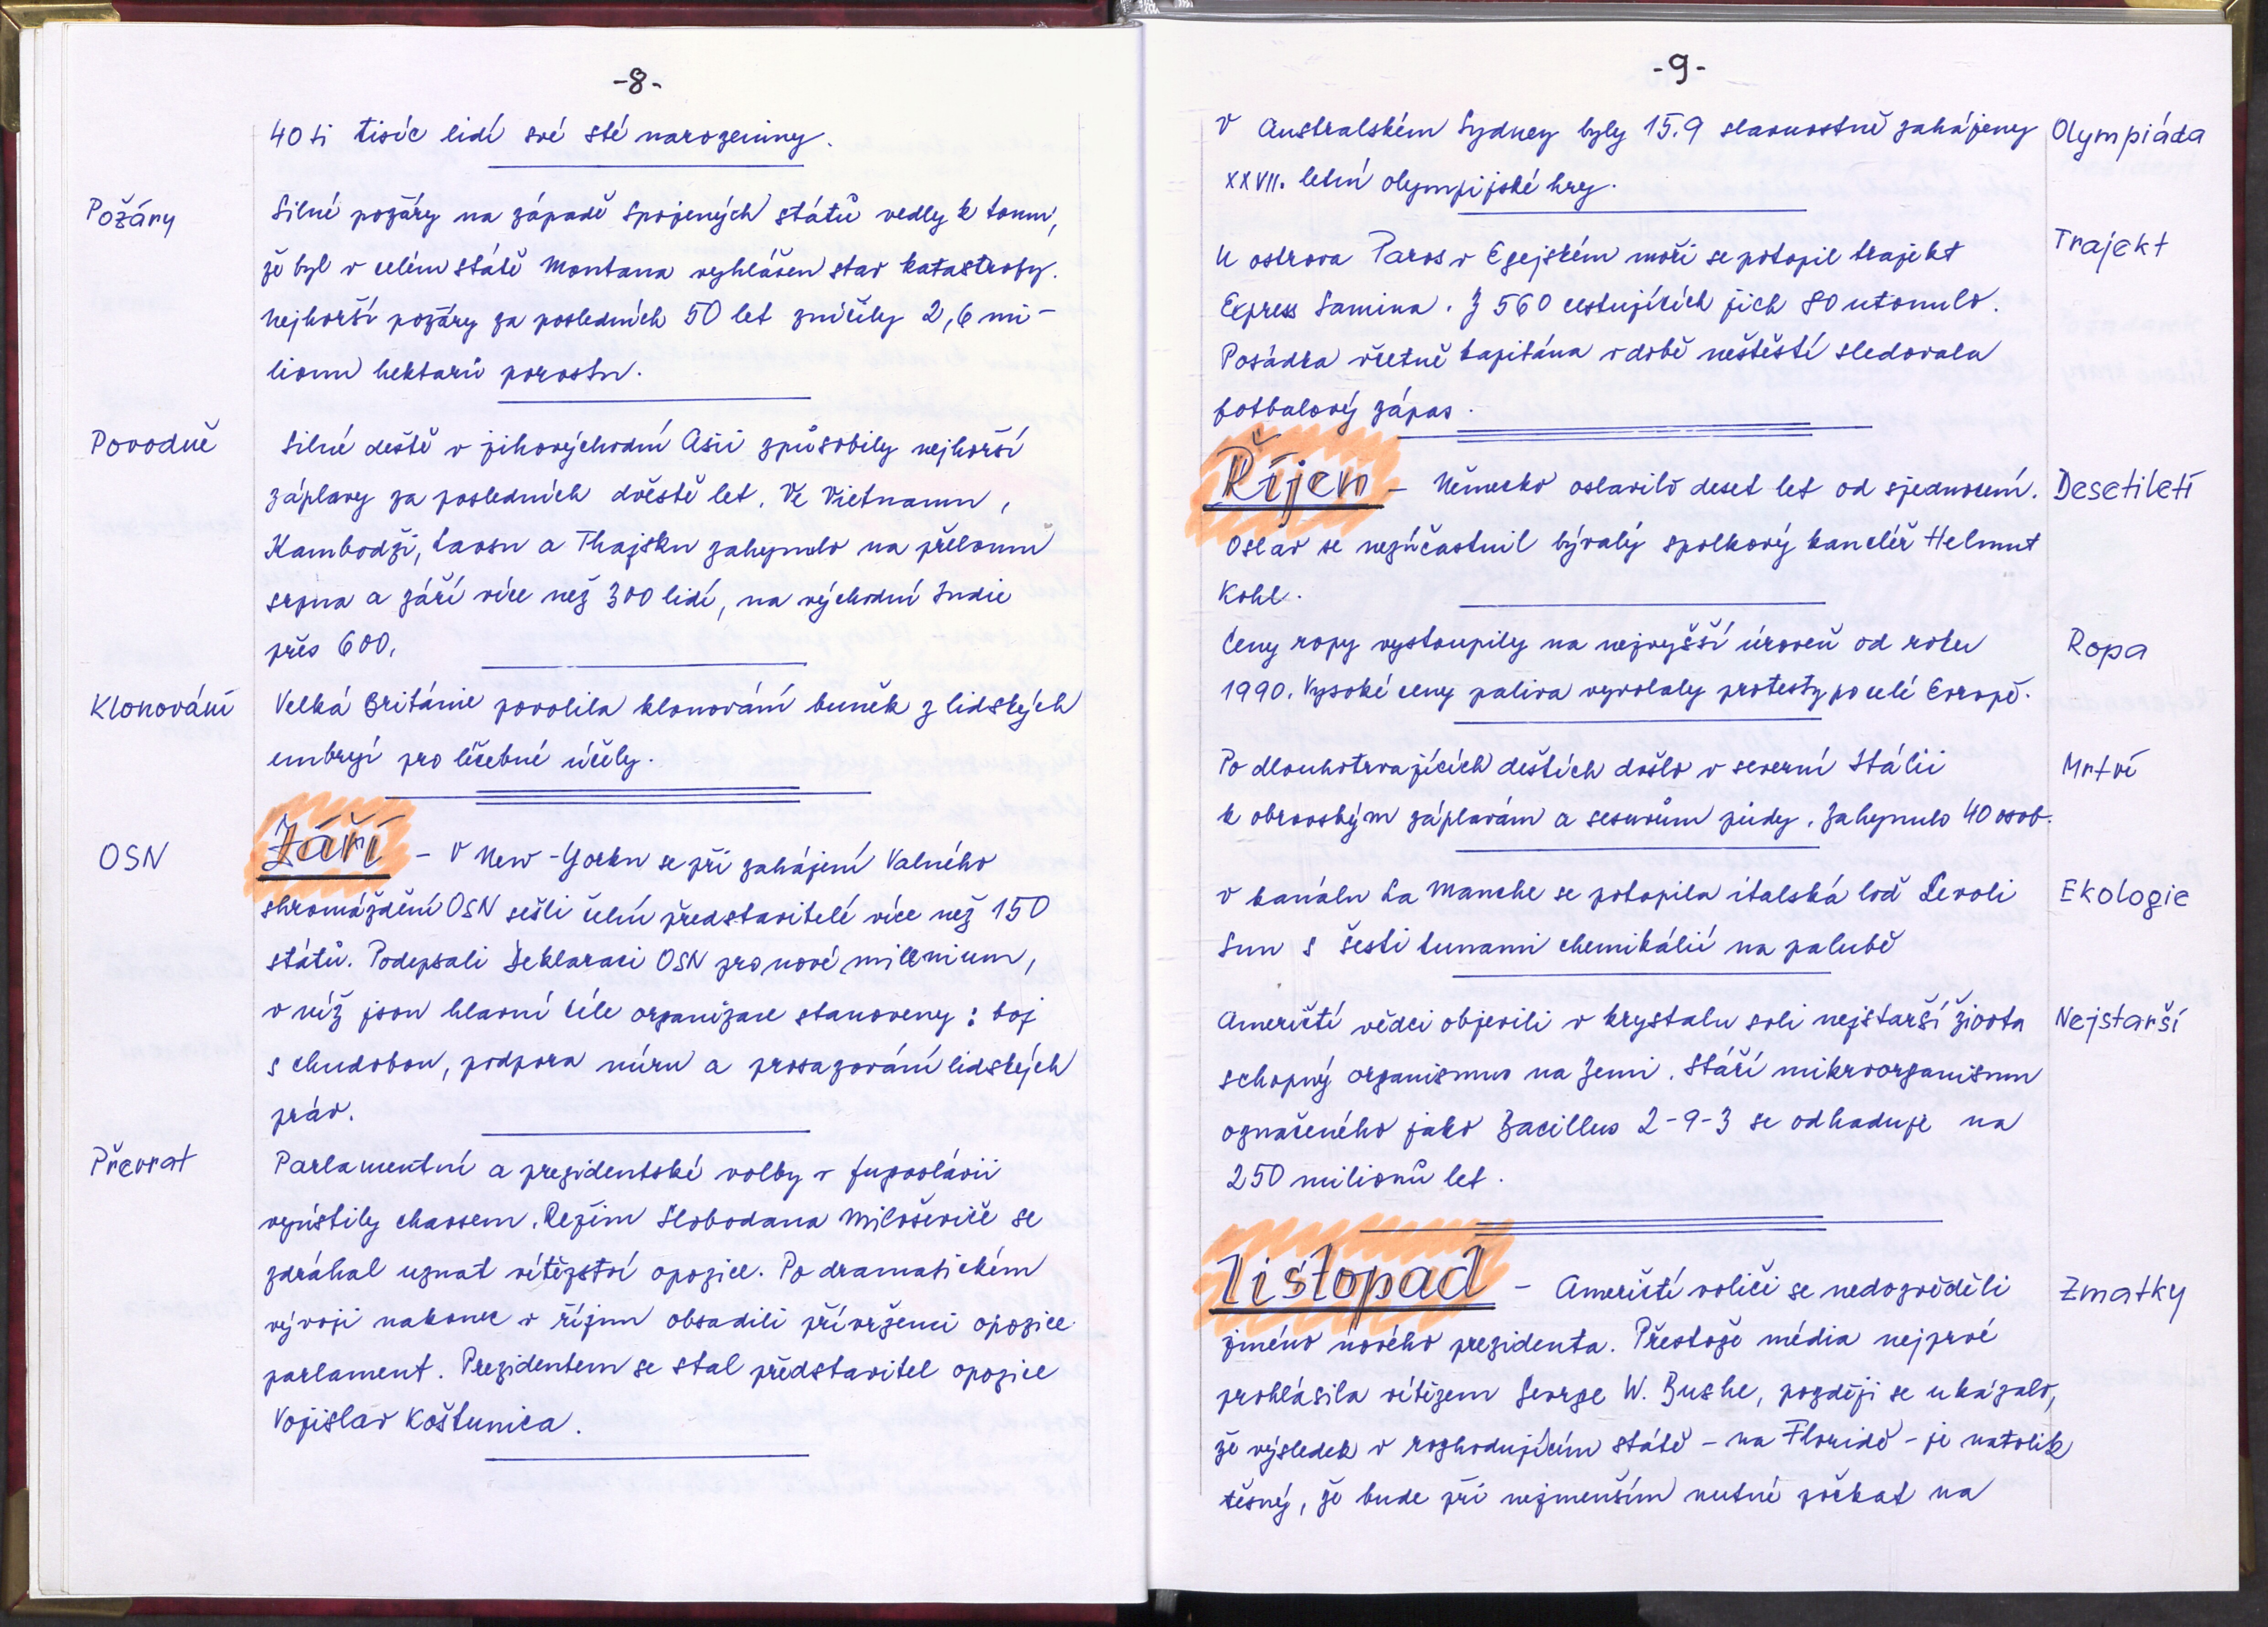 -8-
40ti tisíc lidí své sté narozeniny.
Požáry
Silné požáry na západě Spojených států vedly k tomu,
že byl v celém státě Montana vyhlášen stav katastrofy.
Nejhorší požáry za posledních 50 let zničily 2,6 mi-
lionu hektarů porostu.
Povodně
Silné deště v jihovýchodní Asii způsobily nejhorší
záplavy za posledních dvěstě let. Ve Vietnamu,
Kambodži, Laosu a Thajsku zahynulo na přelomu
srpna a září více než 300 lidí, na východní Indie
přes 600.
Klonování
Velká Británie povolila klonování buněk z lidských
embryí pro léčebné účely.
OSN
Září - V New-Yorku se při zahájení Valného
shromáždění OSN sešli čelní představitelé více než 150
států. Podepsali Deklaraci OSN pro nové millenium,
v níž jsou hlavní cíle organizace stanoveny: boj
s chudobou, podpora míru a prosazování lidských
práv.
Převrat
Parlamentní a prezidentské volby v Jugoslávii
vyústily chaosem. Režim Slobodana Miloševiče se
zdráhal uznat vítězství opozice. Po dramatickém
vývoji nakonec v říjnu obsadili přívrženci opozice
parlament. Prezidentem se stal představitel opozice
Vojislav Koštunica.
-9-
V Australském Sydney byly 15.9 slavnostně zahájeny
XXVII. letní olympijské hry.
Olympiáda
U ostrova Paros v Egejském moři se potopil trajekt
Express Samina. Z 560 cestujících jich 80 utonulo.
Posádka včetně kapitána v době neštěstí sledovala
fotbalový zápas.
Trajekt
Říjen - Německo oslavilo deset let od sjednocení.
Oslav se nezúčastnil bývalý spolkový kancléř Helmut
Kohl.
Desetiletí
Ceny ropy vystoupily na nejvyšší úroveň od roku
1990. Vysoké ceny paliva vyvolaly protesty po celé Evropě.
Ropa
Po dlouhotrvajících deštích došlo v severní Itálii
k obrovským záplavám a sesuvům půdy. Zahynulo 40 osob.
Mrtví
V kanálu La Manche se potopila italská loď Levoli
Sun s šesti tunami chemikálií na palubě
Ekologie
Američtí vědci objevili v krystalu soli nejstarší života
schopný organismus na Zemi. Stáří mikroorganismu
označeného jako Bacillus 2-9-3 se odhaduje na
250 milionů let.
Nejstarší
Listopad - Američtí voliči se nedozvěděli
jméno nového prezidenta. Přestože média nejprvé
prohlásila vítězem George W. Bushe, později se ukázalo,
že výsledek v rozhodujícím státě - na Floridě - je natolik
těsný, že bude při nejmenším nutné počkat na
Zmatky